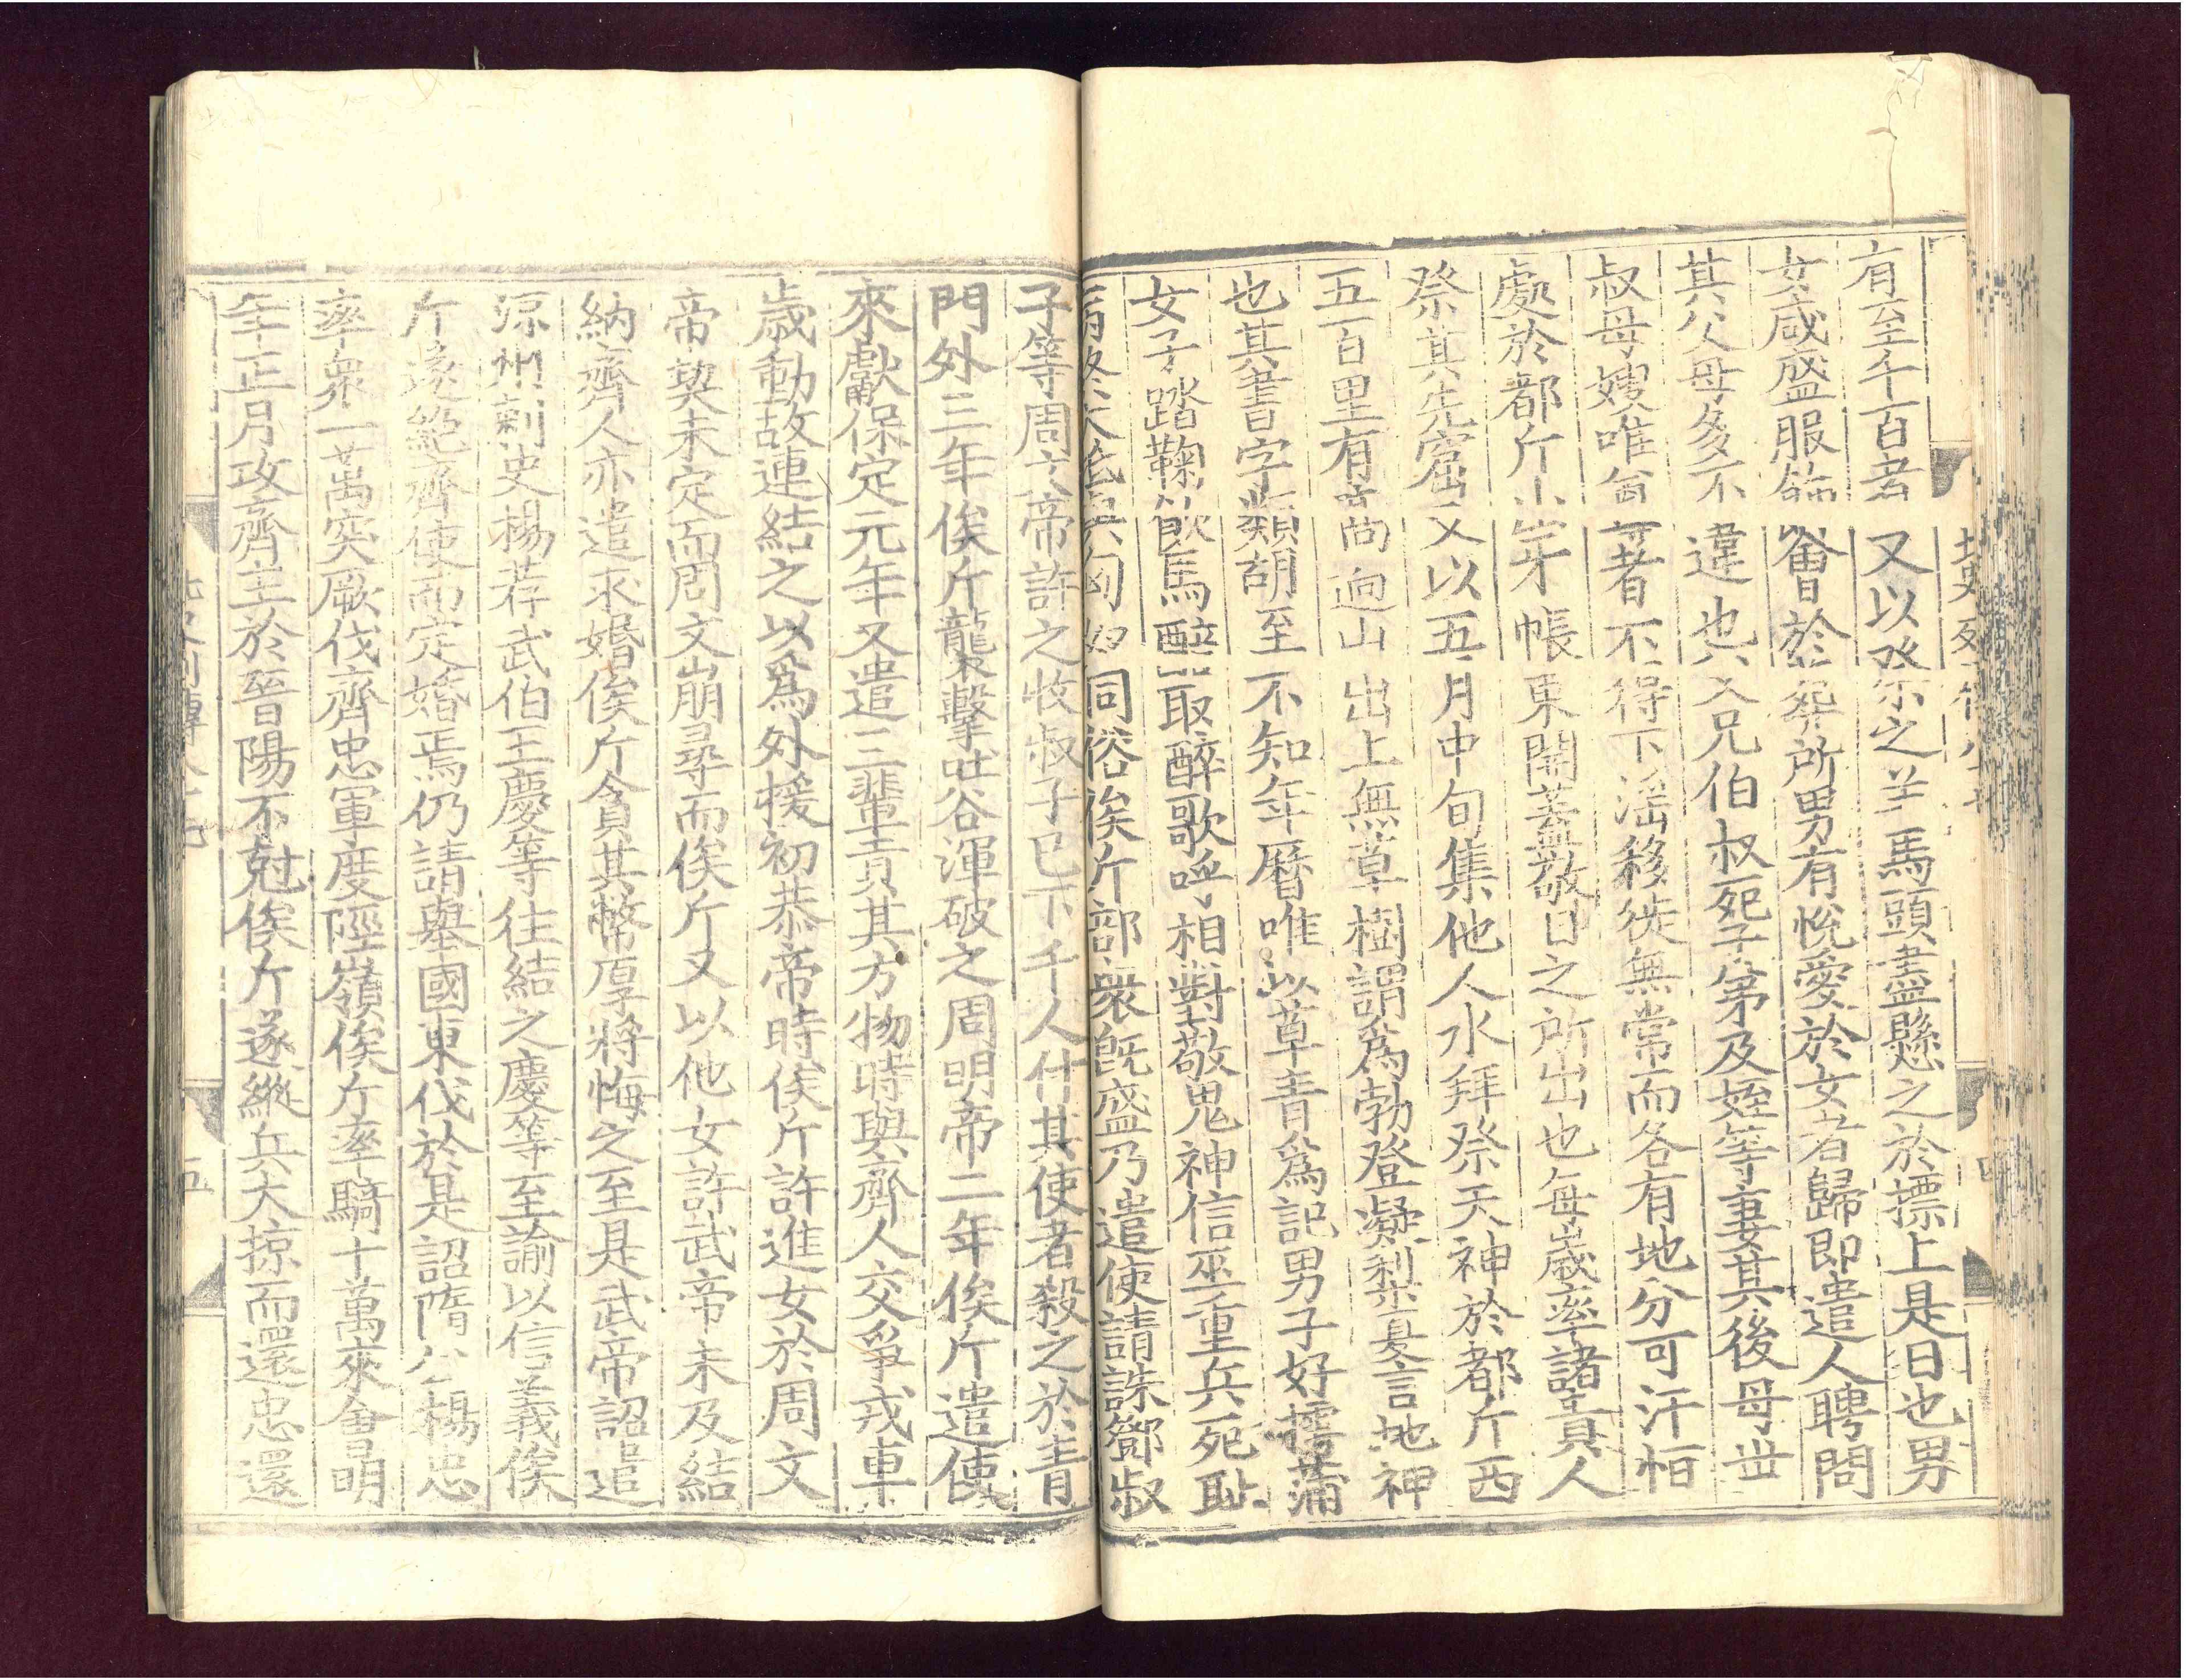 有至千百者又以祭之羊馬頭盡懸之於摽上是日也男
女咸盛服飾會於葬所男有悅愛於女者歸即遣人聘問
其父母多不違也父兄伯叔死子弟及姪等妻其後母世
叔母嫂唯尊者不得下滛移徙無常而各有地分可汗恒
處於都斤山牙帳東開蓋敬日之所出也每歲率諸貴人
祭其先窟又以五月中旬集他人水拜祭天神於都斤西
五百里有高迥山出上無草樹謂爲勃登凝梨夏言地神
也其書字類胡至不知年曆唯以草青爲記男子好摴蒲
女子踏鞠飲馬酪取醉歌呼相對敬鬼神信巫重兵死恥
病終大抵與匈奴同俗俟斤部衆旣盛乃遣使請誅鄧叔
子等周文帝許之收叔子已下千人付其使者殺之於青
門外三年俟斤龍襲擊吐谷渾破之周明帝二年俟斤遣使
來獻保定元年又遣三輩貢其方物時與齊人交爭戎車
歲動故連結之以爲外援初恭帝時俟斤許進女於周文
帝契未定而周文崩尋而俟斤又以他女許武帝未及結
納齊人亦遣求婚俟斤貪其幣厚將悔之至是武帝詔遣
凉州刺史楊荐武伯王慶等往結之慶等至諭以信義俟
斤遂絶齊使而定婚焉仍請舉國東伐於是詔隋公楊忠
率衆一萬突厥伐齊忠軍度陘嶺俟斤率騎十萬來會明
年正月攻齊主於晉陽不尅俟斤遂縱兵大掠而還忠還
五